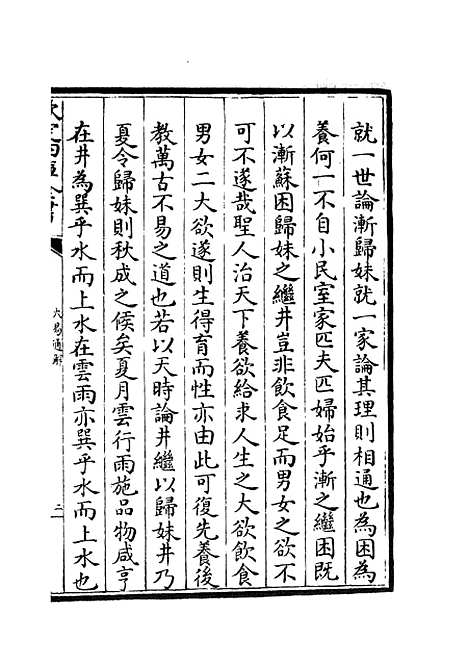 就一世論漸歸妹就一家論其理則相通也為困為
養何一不自小民室家匹夫匹婦始乎漸之繼困既
以漸蘇困歸妹之繼井豈非飲食足而男女之欲不
可不遂哉聖人治天下養欲給求人生之大欲飲食
男女二大欲遂則生得育而性亦由此可復先養後
教萬古不易之道也若以天時論井繼以歸妹井乃
夏令歸妹則秋成之候矣夏月雲行雨施品物咸亨
在井為巽乎水而上水在雲雨亦巽乎水而上水也
欽定四庫全書
大易通解